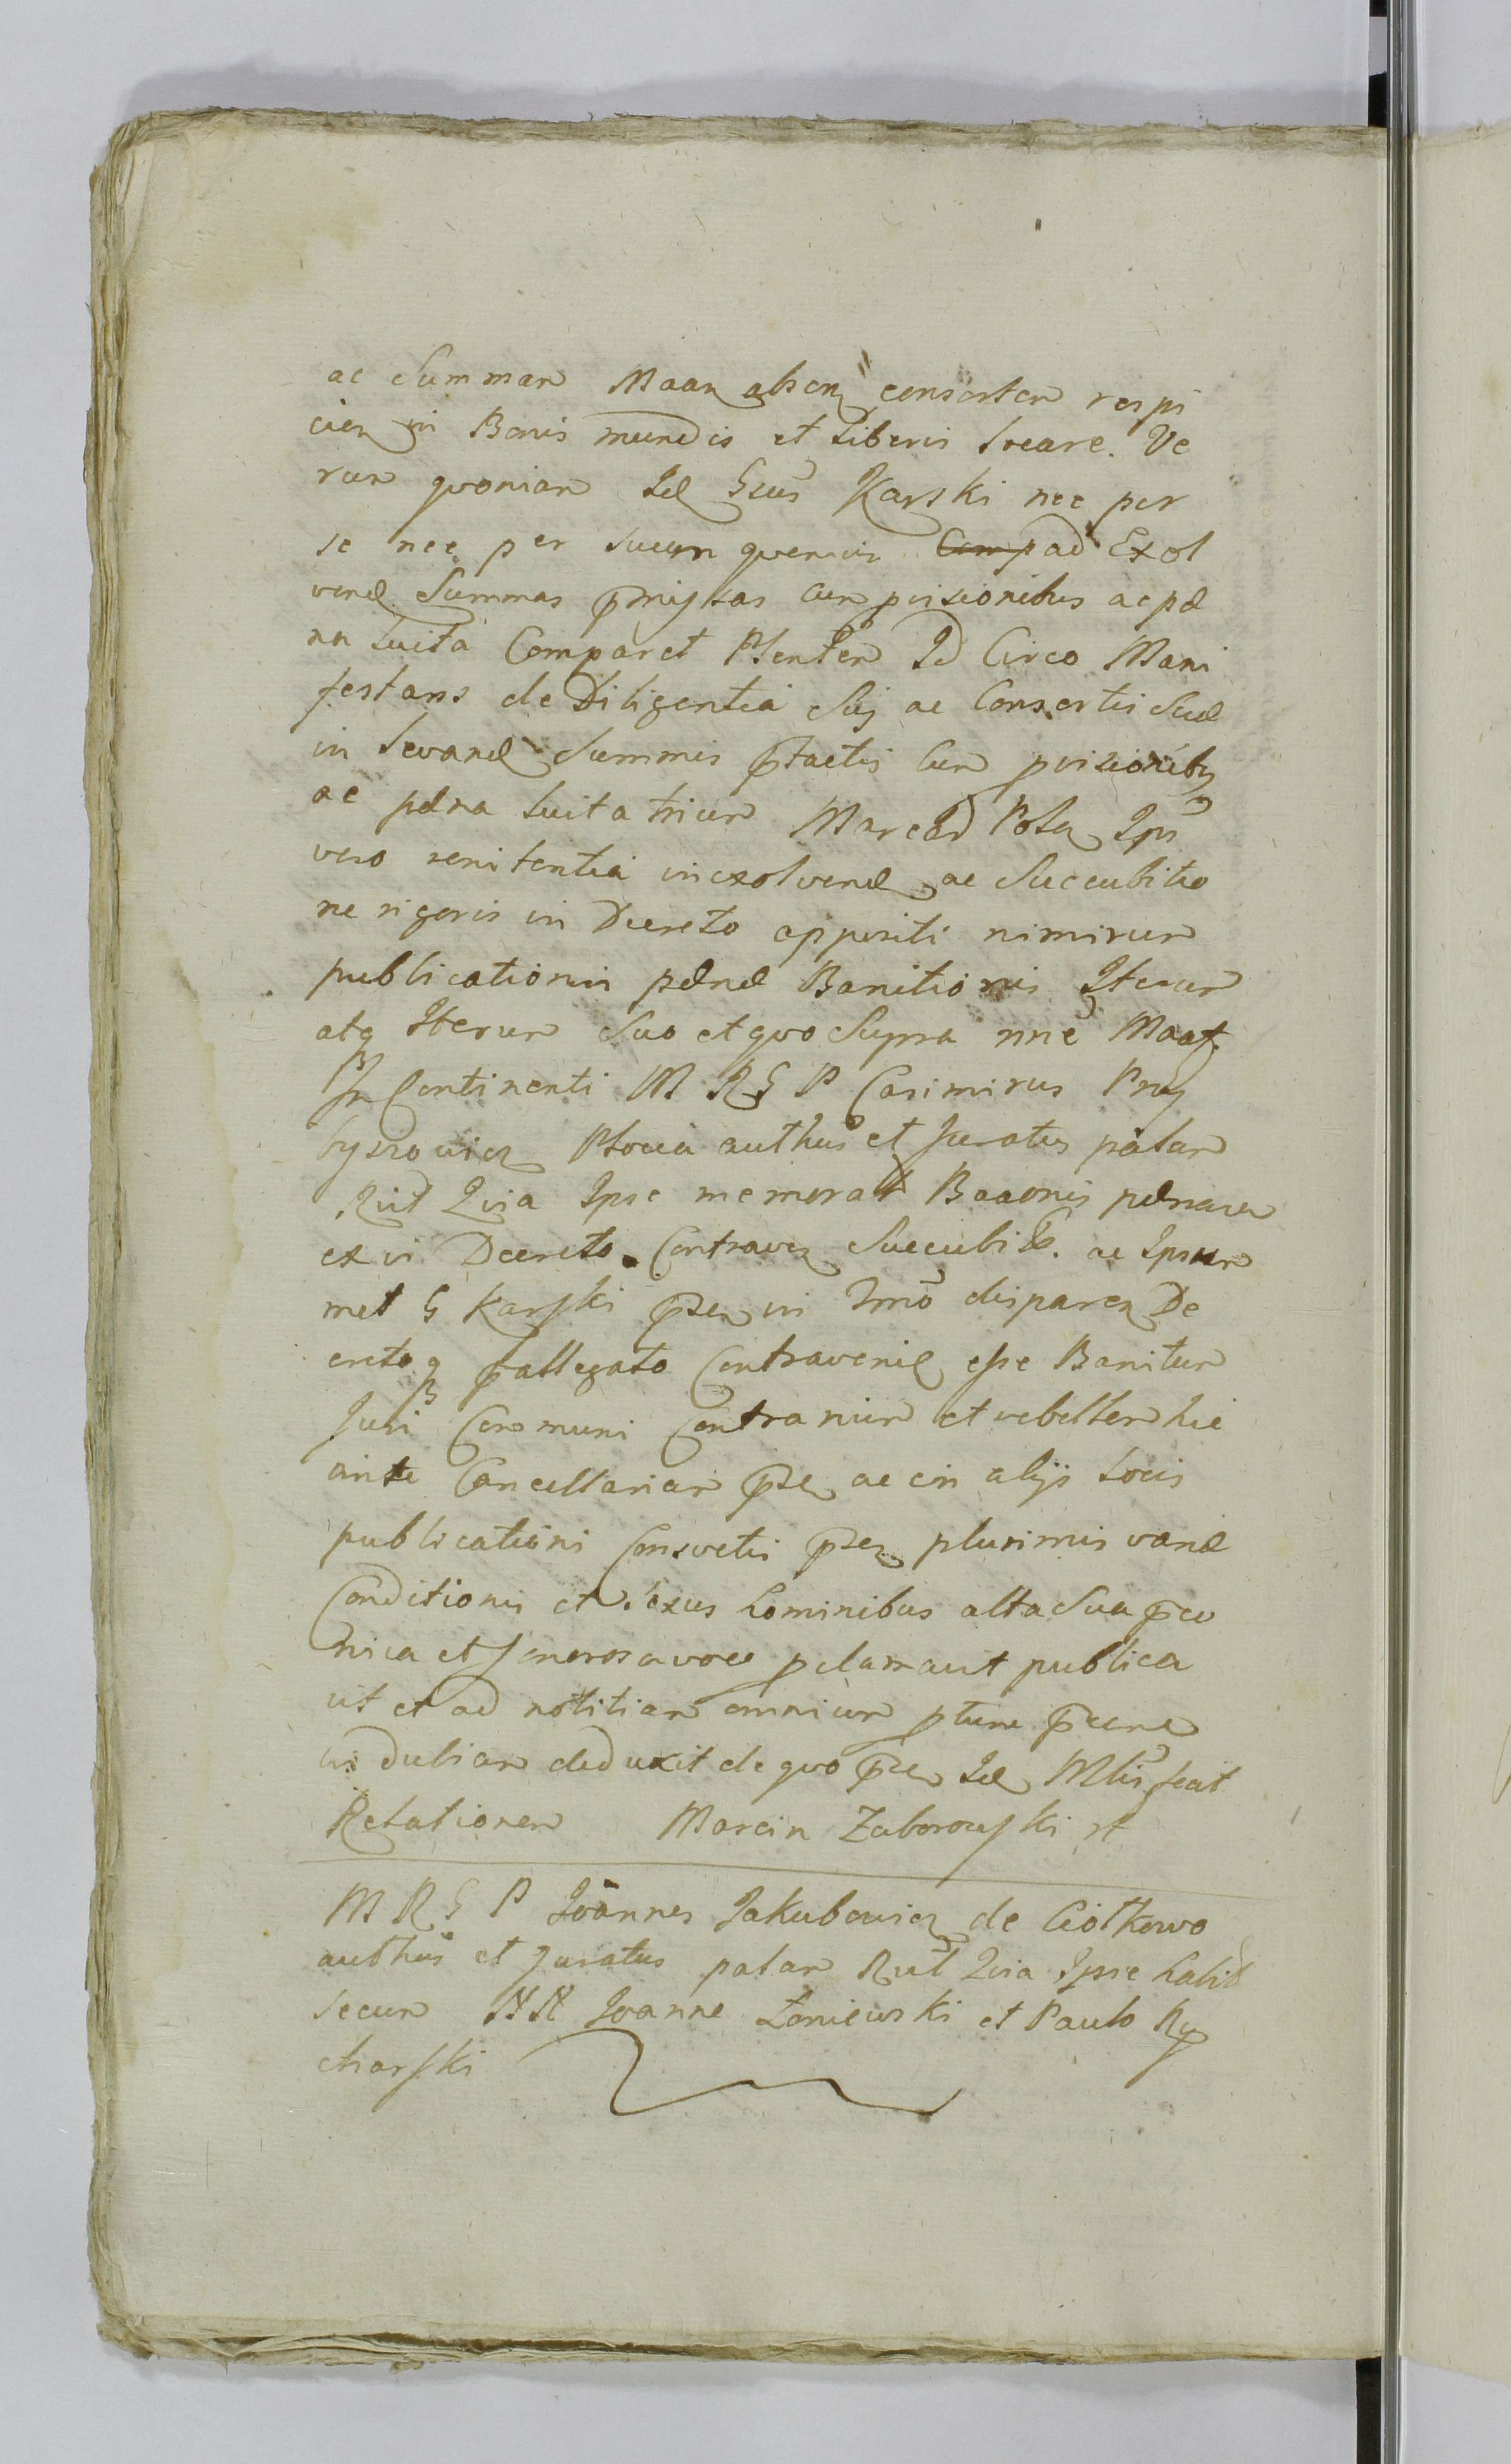 ac Summam Maan absen consorten respi
cien in Bonis mundis et Liberis Locare. Ve
rum quoniam Idē Gsus Karski nec per
se nec per suum quemvis Comp ad Exol
vend Summas pmissas cum pvisionibus ac pæ
na Luita Comparet Ptenter Id Circo Mani
festans de Diligentia Sui ac Consortis Suæ
in Levand Summis ptactis Cum pvisionibq
ac pæna Luita trium Marcar Pola Ipi
vero renitentia in exolvend ac Succubitio
ne rigoris in Decreto appositi nimirum
publicationis pænæ Banitionis Iterum
atq Iterum Suo et quo Supra nne Maaf.
In Continenti M R G P Casimirus Pray
byszowicz Plocen authus et Juratus palam
Rut Quia Ipse memorat Baaonis pænam
ex vi Decreto Contraven Succubit. ac Ipsum
met G Karski psen in Imo disparen De
cretoq pallegato Contravenie esse Banitum
Juri Communi Contrarium et rebellem hic
ante Cancellariam psen ac in alijs Locis
publicationi Consvetis psen plurimis variæ
Conditionis et sexus hominibus alta Sua pco
nica et Sonorosa voce pclamavit publica
vit et ad notitiam omnium ptunc
dubiam deduxit de quo psen Idē Mtis fecit
Relationem Marcin Zaborowski rt
M R G P Joannes Jakubowicz de Ciołkowo
authus et Juratus palam Rut Quia Ipse habit
secum NN Joanne Łoniewski et Paulo Ry
charski